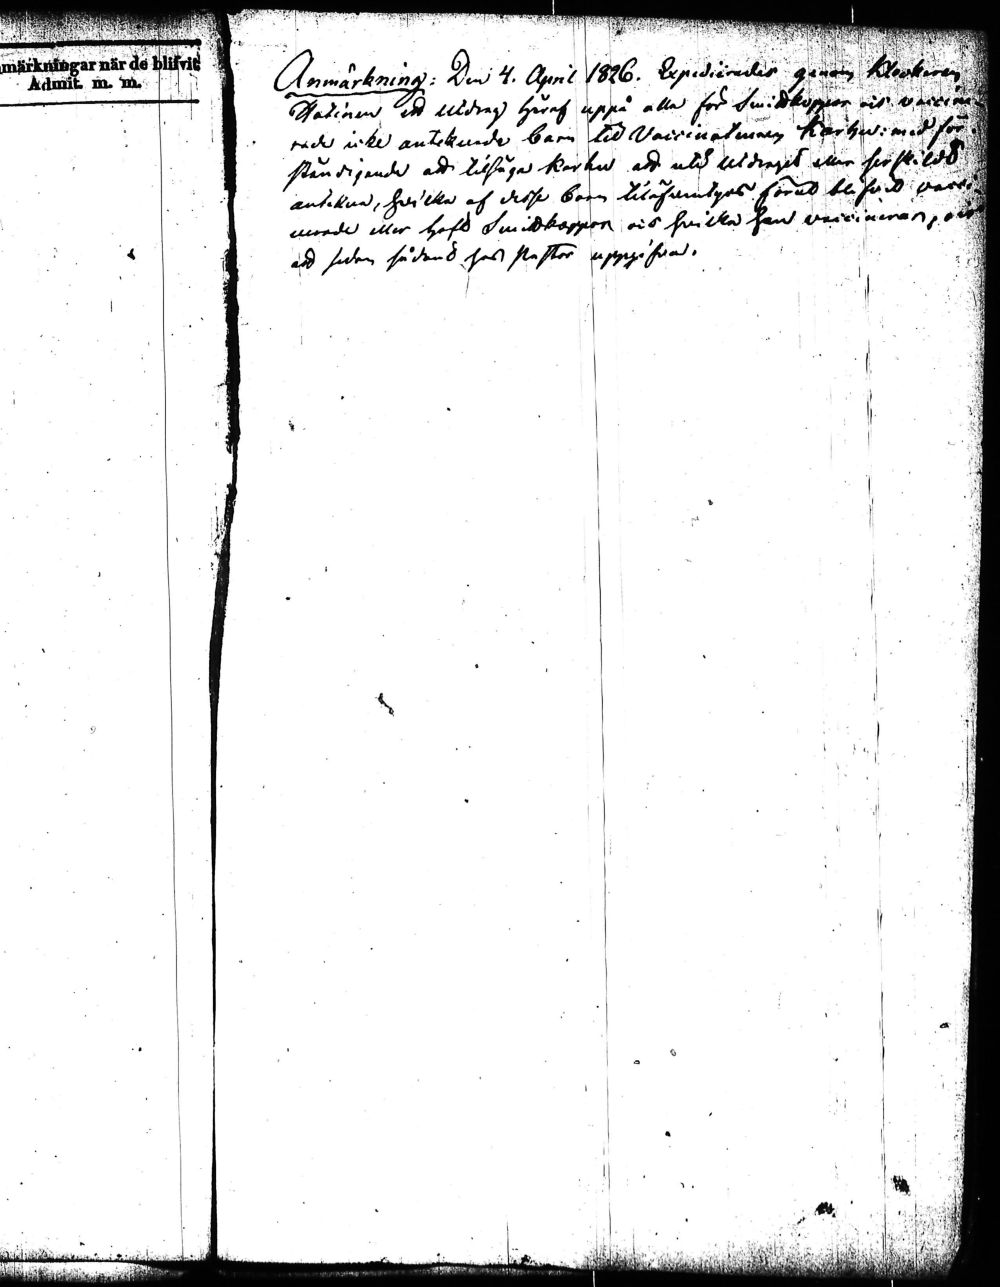 märkningar när de blifvit
Admit. m. m.
Anmärkning: Den 4. April 1826. Expedierades genom Klockaren
ett Utdrag häraf uppå alla för Smittkoppor eis vaccine-
rade icke antecknade barn til Vaccinateuren Karhu: med för-
ständigande att tilsäga Karhu att uti Utdraget eller särskildt
antekna, hvilka af desse barn förut blifvit vacci-
nerade eller haft Smittkoppor eis hvilka han vaccinerar,
att sedan sådant hos Pastor uppgifva.